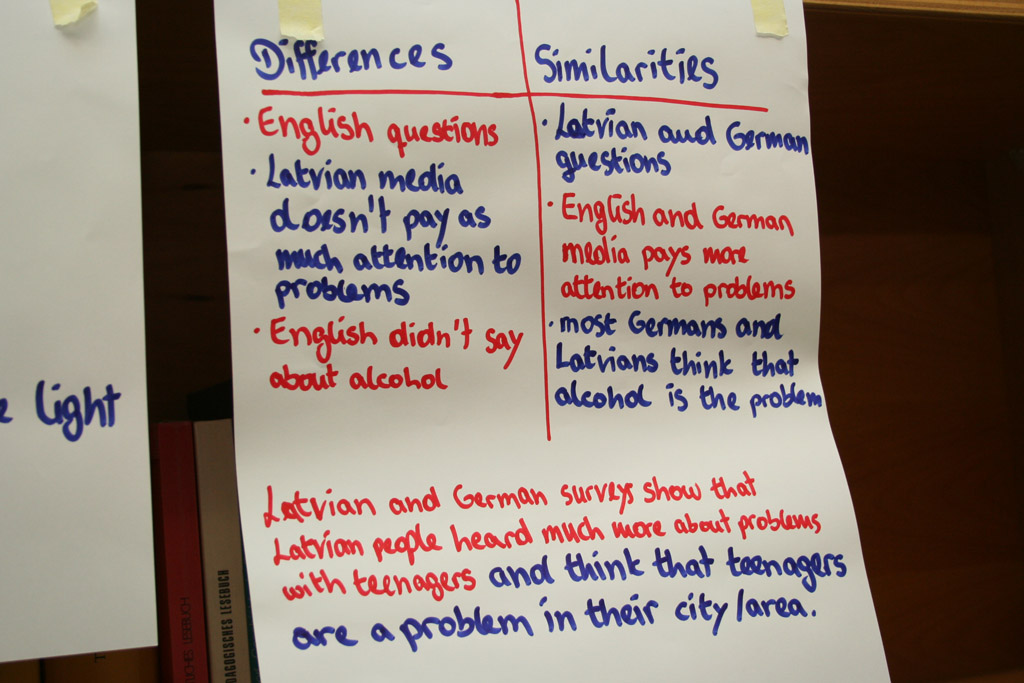 Differences
• English questions
• Latvian media
doesn't pay as
much attention to
problems
• English didn't say
about alcohol
Similarities
• Latvian and German
questions
• English and German
media pays more
attention to problems
• most Germans and
Latvians think that
alcohol is the problem
Latvian and German surveys show that
Latvian people heard much more about problems
with teenagers and think that teenagers
are a problem in their city/area.
light
LESEBUCH
DAGOGISCHES LESEBUCH